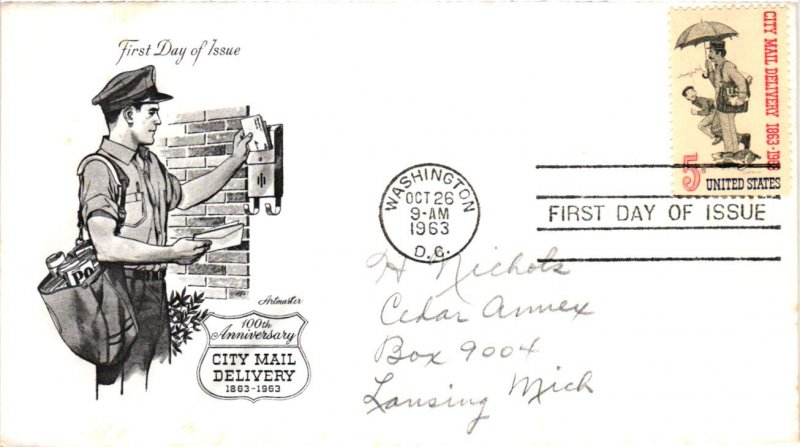 First Day of Issue
CITY MAIL DELIVERY 1863-1963
5¢
UNITED STATES
WASHINGTON
OCT 26
9-AM
1963
D.C.
FIRST DAY OF ISSUE
PO
Artmaster
100th
Anniversary
CITY MAIL
DELIVERY
1863-1963
H Nichols
Cedar Annex
Box 9004
Lansing Mich